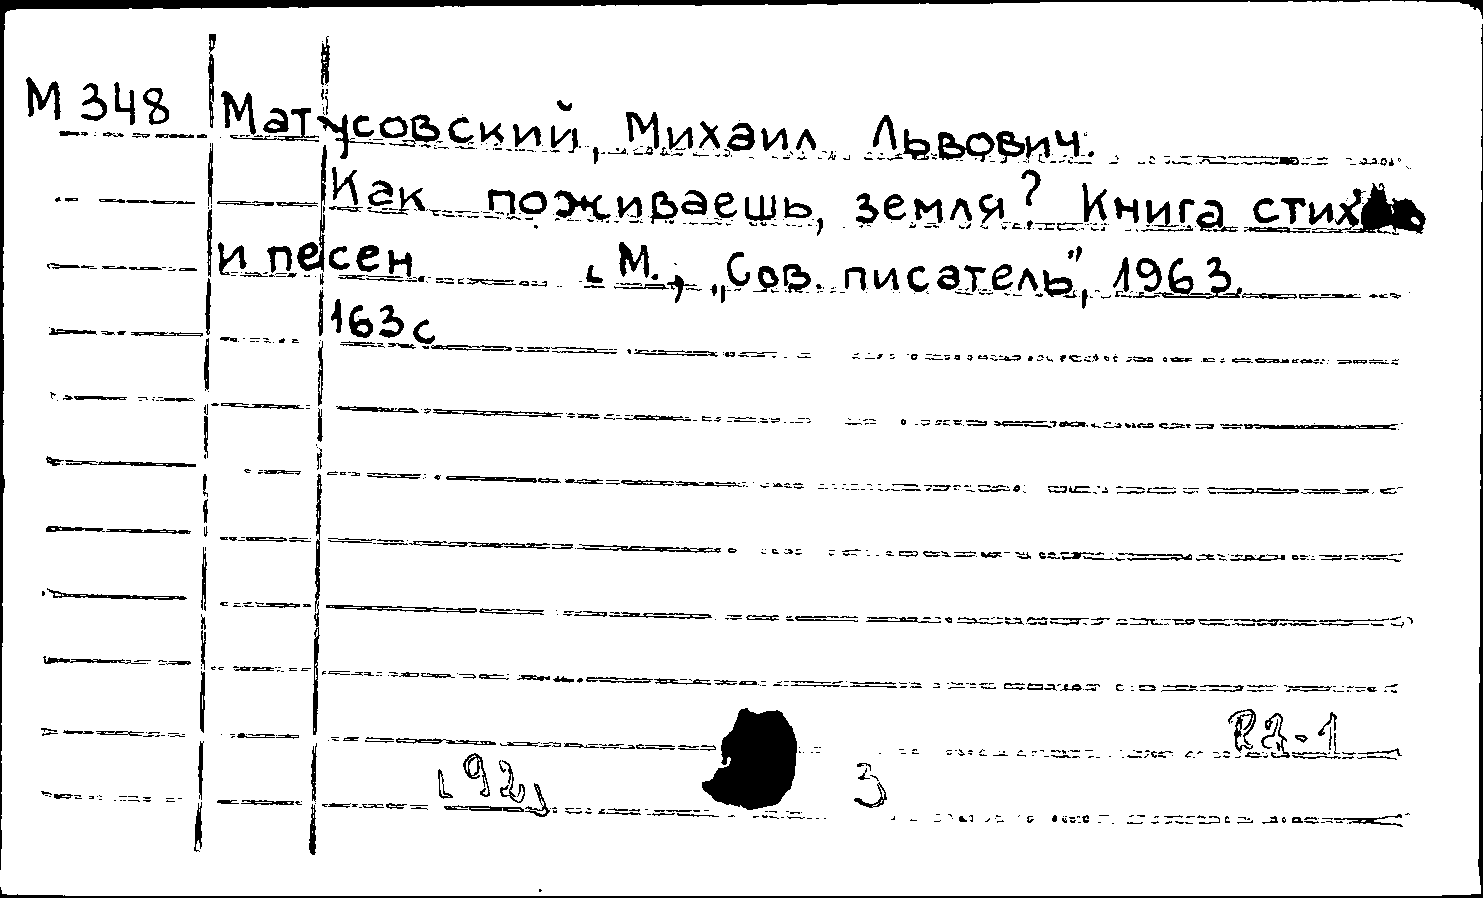 М 348 Матусовский, Михаил Львович.
Как поживаешь, земля? Книга стихов
и песен. М., „Сов. писатель", 1963.
163 с
Р2-1
[92] 3